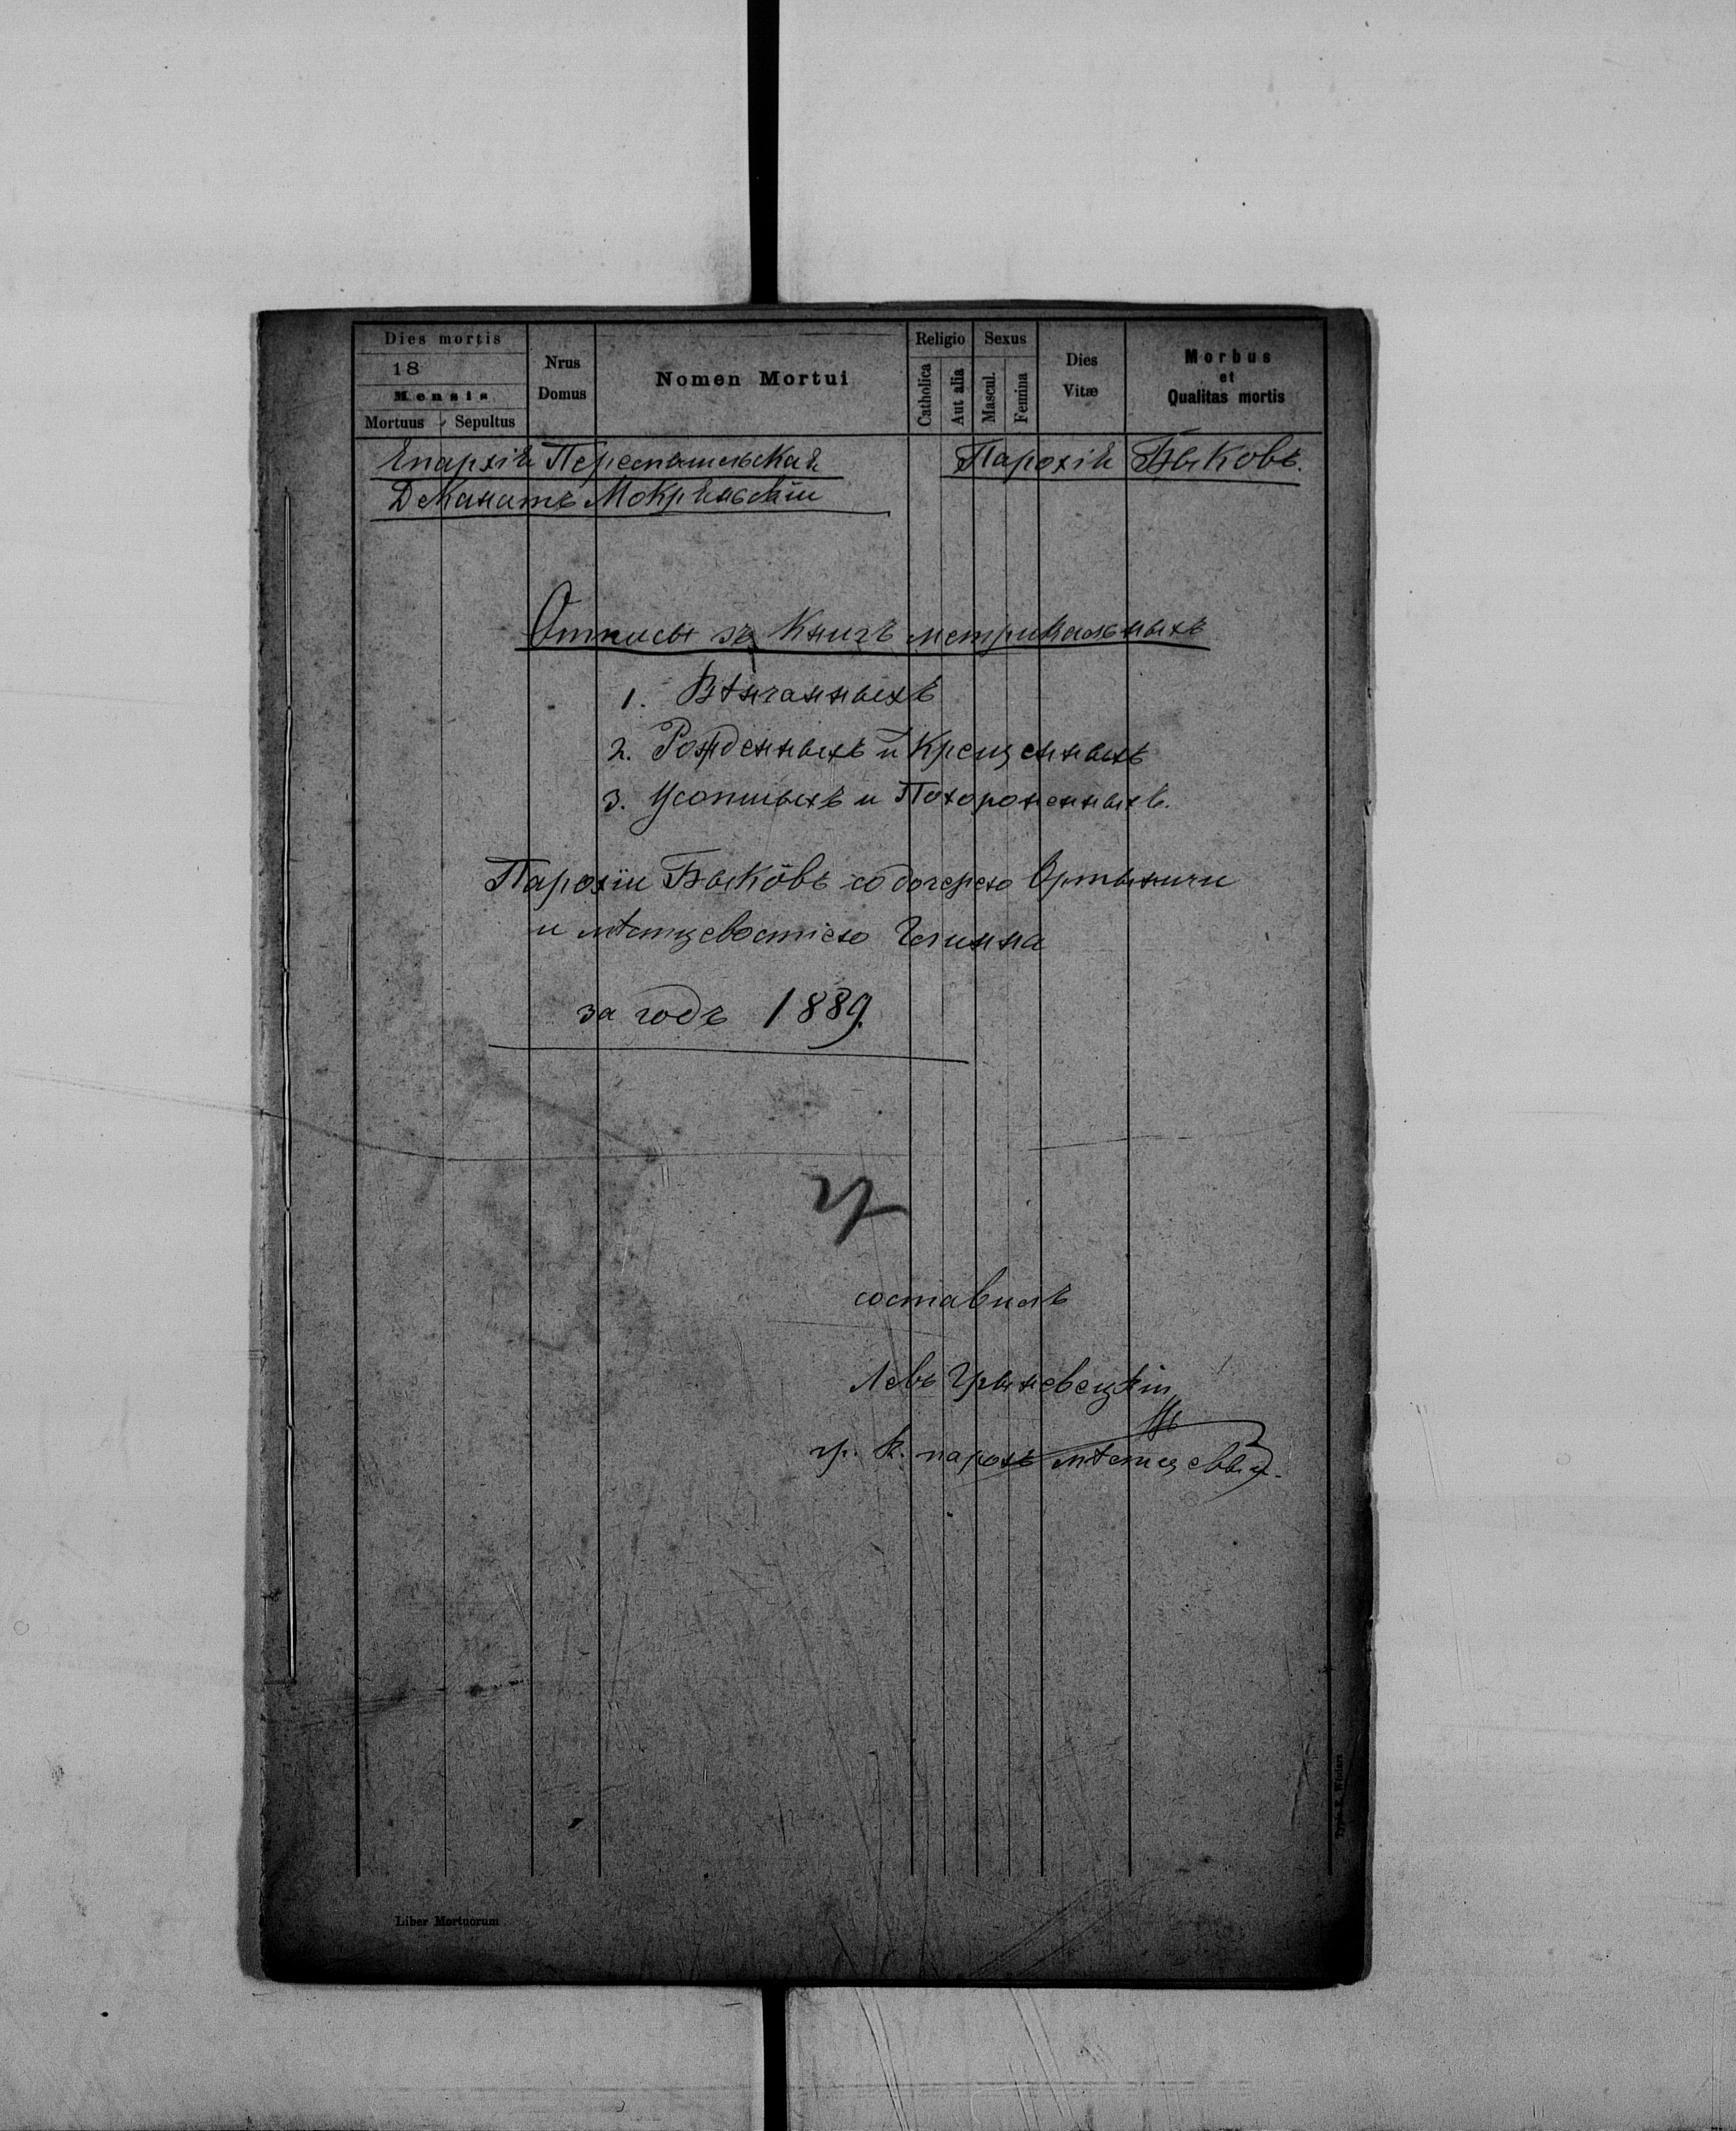 Dies mortis
18
Mensis
Mortuus Sepultus
Nrus Domus
Nomen Mortui
Religio
Catholica
Aut alia
Sexus
Mascul.
Femina
Dies Vitæ
Morbus et Qualitas mortis
Епархія Перемышльская Парохія Быковъ.
Деканатъ Мокрянскій
Отписы зъ Книгъ метрикальныхъ
1. Вѣнчанныхъ
2. Рожденныхъ и Крещенныхъ
3. Усопшыхъ и Похороненныхъ.
Парохіи Быковъ со дочерею Ортыничи
и мѣстцевостію Глинна
за годъ 1889.
составилъ
Левъ Грыневецкій
гр. к. парохъ мѣстцевый.
Liber Mortuorum